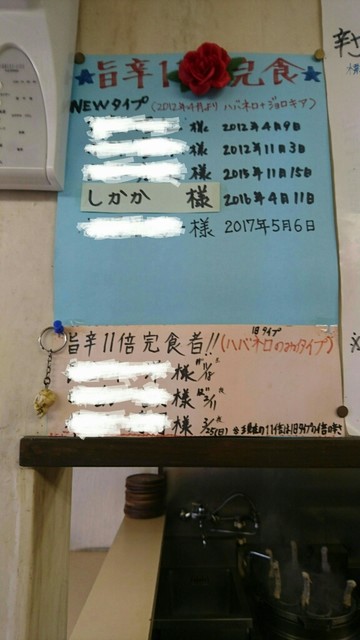 ★旨辛1 完食★
NEWタイプ (2012年4月より ハバネロ+ジョロキア)
様 2012年4月9日
様 2012年11月3日
様 2015年11月15日
しかか 様 2016年4月11日
様 2017年5月6日
旧タイプ
旨辛11倍完食者!! (ハバネロのみタイプ)
様
様
様 3/25(日)
辛